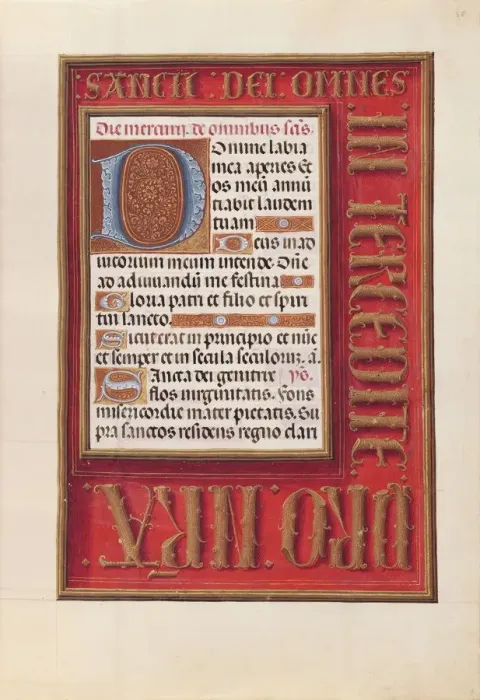 SANCTI DEI OMNES
IN TERCEDITE
PRO NRA
Die mercurij. de omnibus scīs.
Domine labia
mea aperies Et
os meū annū
tiabit laudem
tuam
Deus in ad
iutorium meum intende. Dn̄e
ad adiuuandū me festina
Gloria patri et filio et spiri
tui sancto.
Sicut erat in principio et nūc
et semper et in secula seculoruꝫ. a.
Sancta dei genitrix p̄s.
flos uirginitatis. Fons
misericordie mater pietatis. Su
pra sanctos residens regno clari